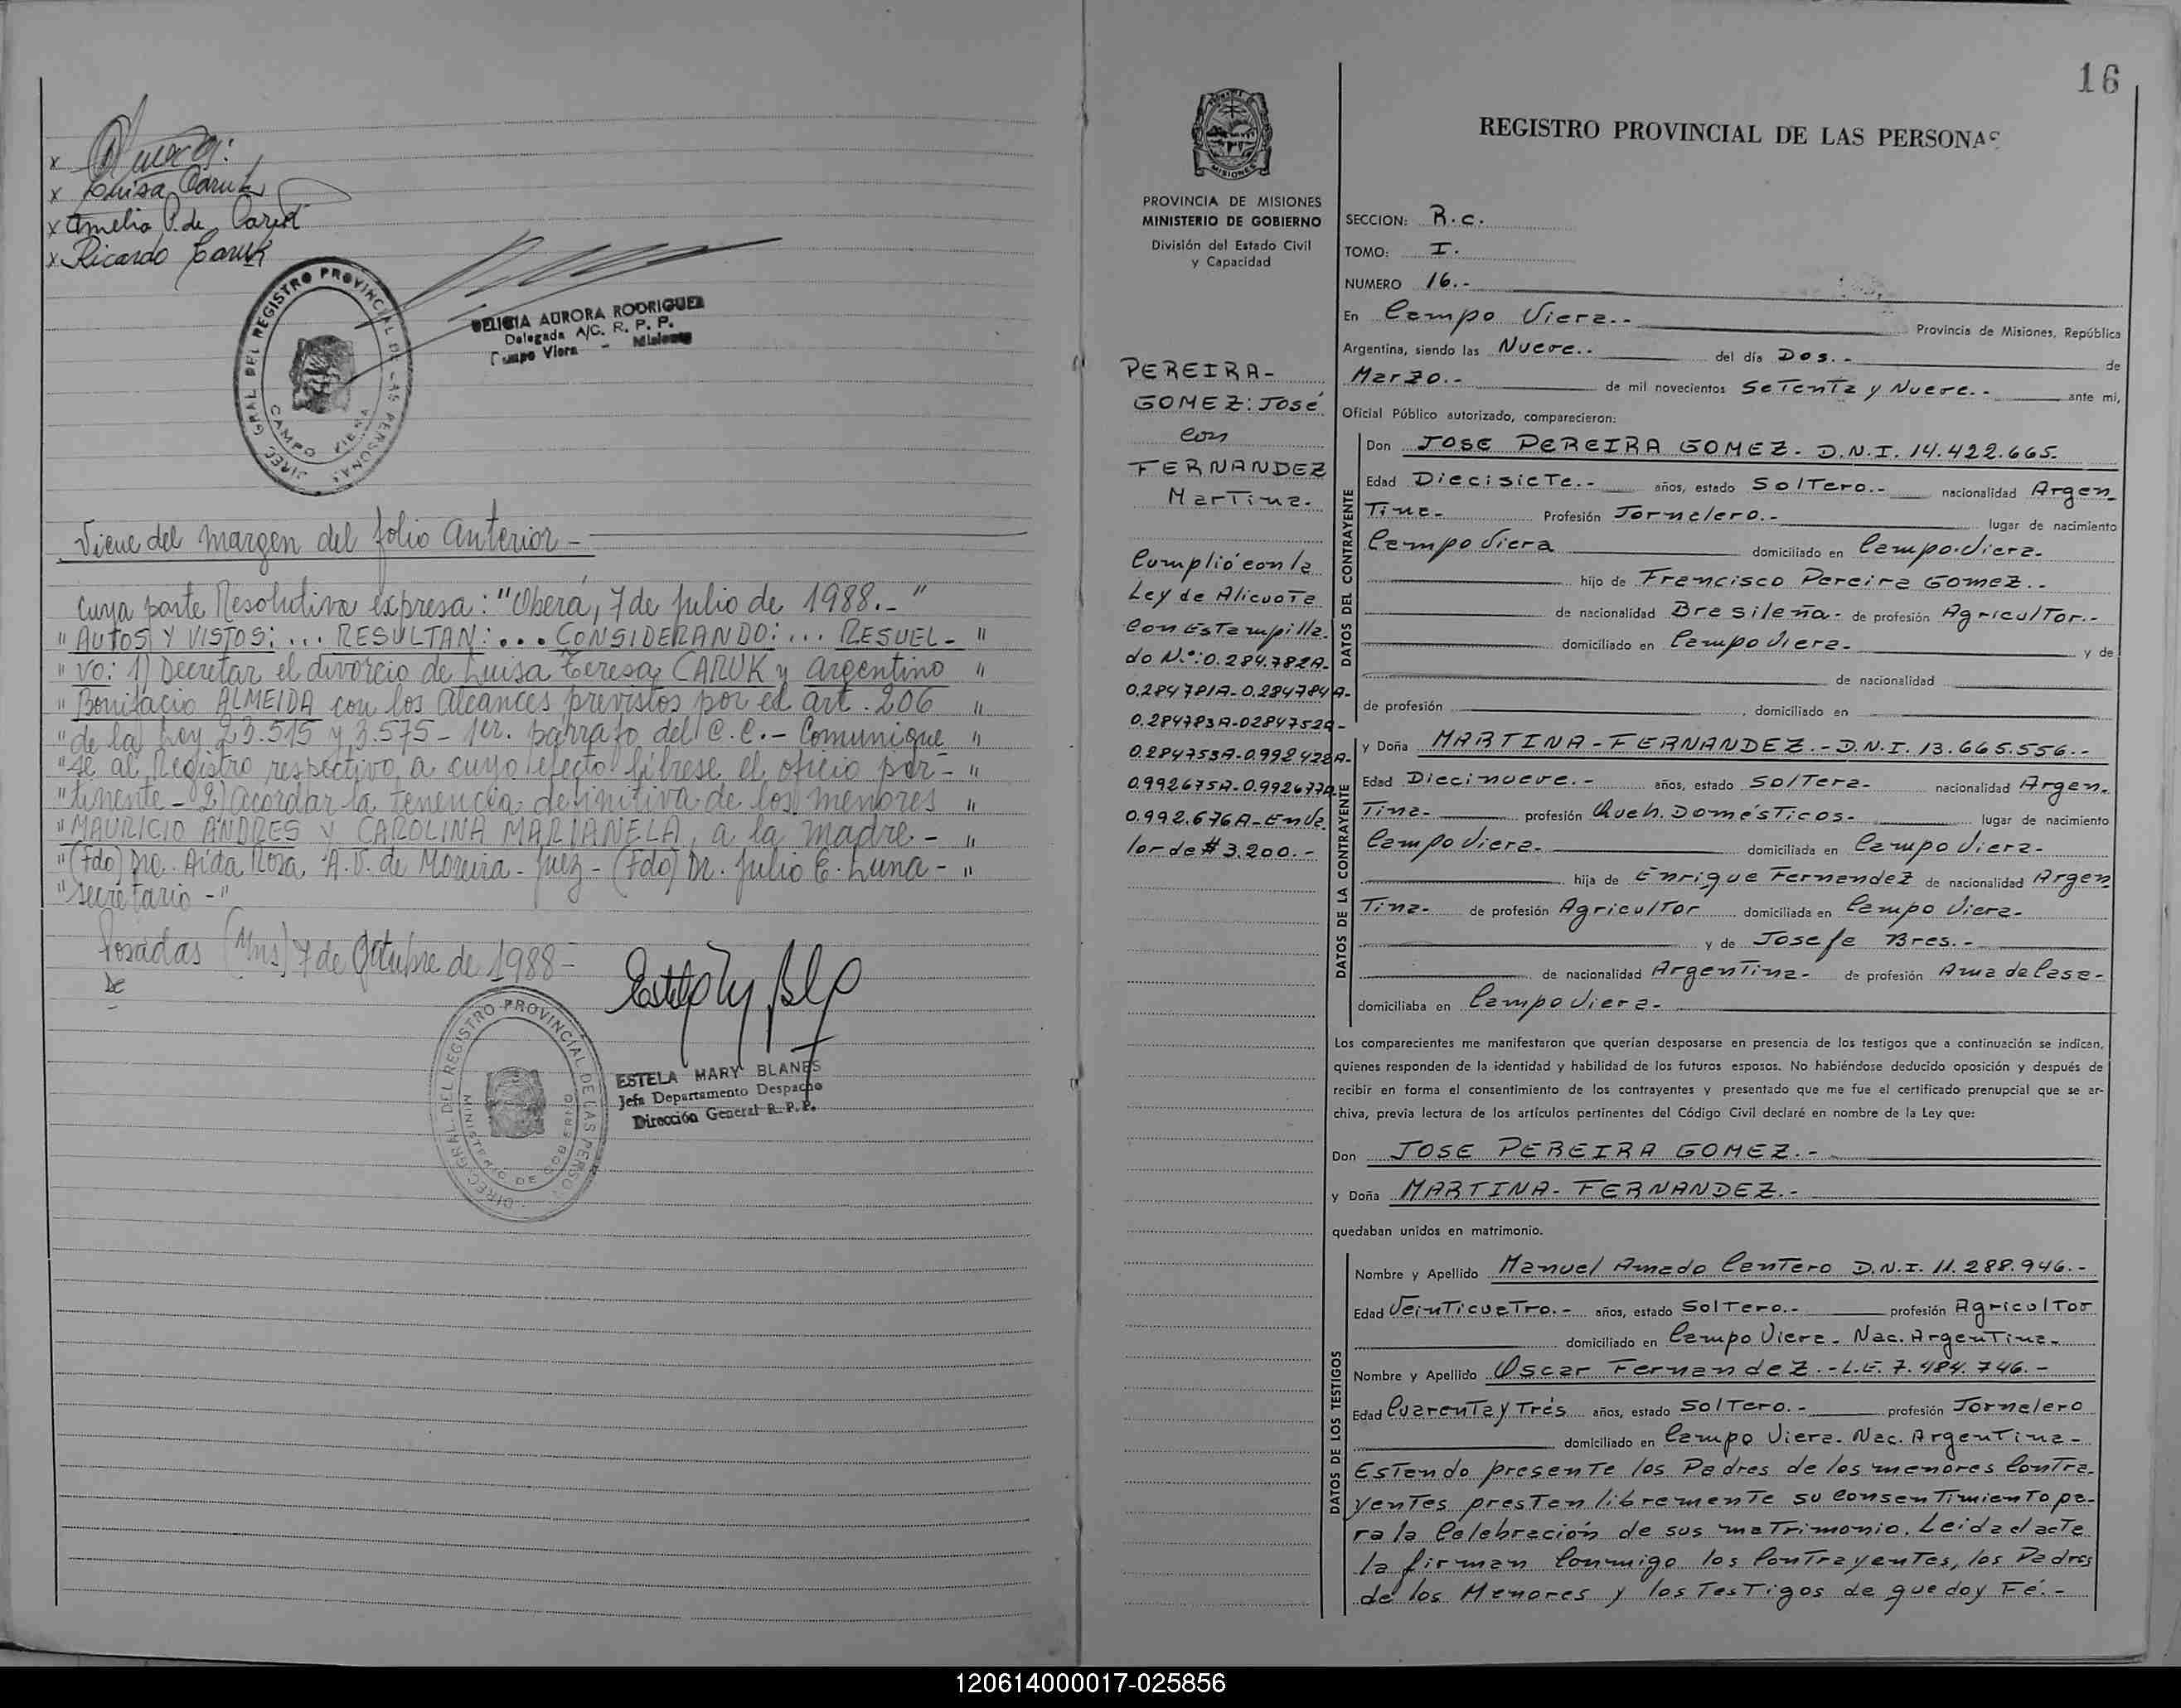 x Luisa Caruk
x Amelia P. de Caruk
x Ricardo Caruk
DIREC. GRAL. DEL REGISTRO PROVINCIAL DE LAS PERSONAS
CAMPO VIERA
DELICIA AURORA RODRIGUEZ
Delegada A/C. R. P. P.
Campo Viera - Misiones
Viene del margen del folio anterior -
cuya parte Resolutiva expresa: "Oberá, 7 de Julio de 1988.- "
" AUTOS Y VISTOS: ... RESULTAN: ... CONSIDERANDO: ... RESUEL- "
" VO: 1) Decretar el divorcio de Luisa Teresa CARUK y Argentino "
" Bonifacio ALMEIDA con los alcances previstos por el art. 206 "
" de la Ley 23.515 y 3.575 - 1er. párrafo del C.C.- Comunique "
" se al Registro respectivo a cuyo efecto líbrese el oficio per- "
" tinente - 2) acordar la tenencia definitiva de los menores "
" MAURICIO ANDRES y CAROLINA MARIANELA, a la madre - "
" (Fdo) Dra. Aída Rosa A. V. de Moreira - Juez - (Fdo) Dr. Julio E. Luna - "
" Secretario - "
Posadas (Mns) 7 de Octubre de 1988 -
De
DIREC. GRAL. DEL REGISTRO PROVINCIAL DE LAS PERSO.
MINISTERIO DE GOBIERNO
ESTELA MARY BLANES
Jefa Departamento Despacho
Dirección General R. P. P.
16
MISIONES
PROVINCIA DE MISIONES
MINISTERIO DE GOBIERNO
División del Estado Civil
y Capacidad
PEREIRA-
GOMEZ: José
con
FERNANDEZ
Martina.
Cumplió con la
Ley de Alicuota
con Estampilla-
do N.º: 0.284.782A-
0.284781A-0.284784A-
0.284783A-0284752A-
0.284753A-0.992428A-
0.992675A-0.992677A-
0.992.676A-En Va
lor de $ 3.200.-
REGISTRO PROVINCIAL DE LAS PERSONAS
SECCION: R.c.
TOMO: I.
NUMERO 16.-
En Campo Viera.- Provincia de Misiones, República
Argentina, siendo las Nueve.. del día Dos.- de
Marzo.- de mil novecientos Setenta y Nueve.- ante mi,
Oficial Público autorizado, comparecieron:
DATOS DEL CONTRAYENTE
Don JOSE PEREIRA GOMEZ. D.N.I. 14.422.665.
Edad Diecisiete.- años, estado Soltero.- nacionalidad Argen-
Tina- Profesión Jornalero.- lugar de nacimiento
Campo Viera domiciliado en Campo-Viera-
hijo de Francisco Pereira Gomez.-
de nacionalidad Brasileña- de profesión Agricultor.-
domiciliado en Campo Viera- y de
de nacionalidad
de profesión , domiciliado en
DATOS DE LA CONTRAYENTE
y Doña MARTINA-FERNANDEZ.-D.N.I. 13.665.556.-
Edad Diecinueve.- años, estado Soltera- nacionalidad Argen-
Tina- profesión Queh. Domésticos- lugar de nacimiento
Campo Viera- domiciliada en Campo Viera-
hija de Enrique Fernandez de nacionalidad Argen
Tina- de profesión Agricultor domiciliada en Campo Viera-
y de Josefa Bres.-
de nacionalidad Argentina- de profesión Ama de Casa-
domiciliaba en Campo Viera-
Los comparecientes me manifestaron que querían desposarse en presencia de los testigos que a continuación se indican,
quienes responden de la identidad y habilidad de los futuros esposos. No habiéndose deducido oposición y después de
recibir en forma el consentimiento de los contrayentes y presentado que me fue el certificado prenupcial que se ar-
chiva, previa lectura de los artículos pertinentes del Código Civil declaré en nombre de la Ley que:
Don JOSE PEREIRA GOMEZ.-
y Doña MARTINA-FERNANDEZ.-
quedaban unidos en matrimonio.
DATOS DE LOS TESTIGOS
Nombre y Apellido Manuel Amado Centero D.N.I. 11.288.946.-
Edad Veinticuatro.- años, estado Soltero.- profesión Agricultor
domiciliado en Campo Viera- Nac. Argentina-
Nombre y Apellido Oscar Fernandez.-L.E. 7.484.746.-
Edad Cuarenta y Trés años, estado Soltero.- profesión Jornalero
domiciliado en Campo Viera- Nac. Argentina-
Estando presente los Padres de los menores Contra-
yentes prestan libremente su Consentimiento pa-
ra la Celebración de sus matrimonio. Leida el acta
la firman Conmigo los Contrayentes, los Padres
de los Menores y los Testigos de que doy Fé.-
120614000017-025856